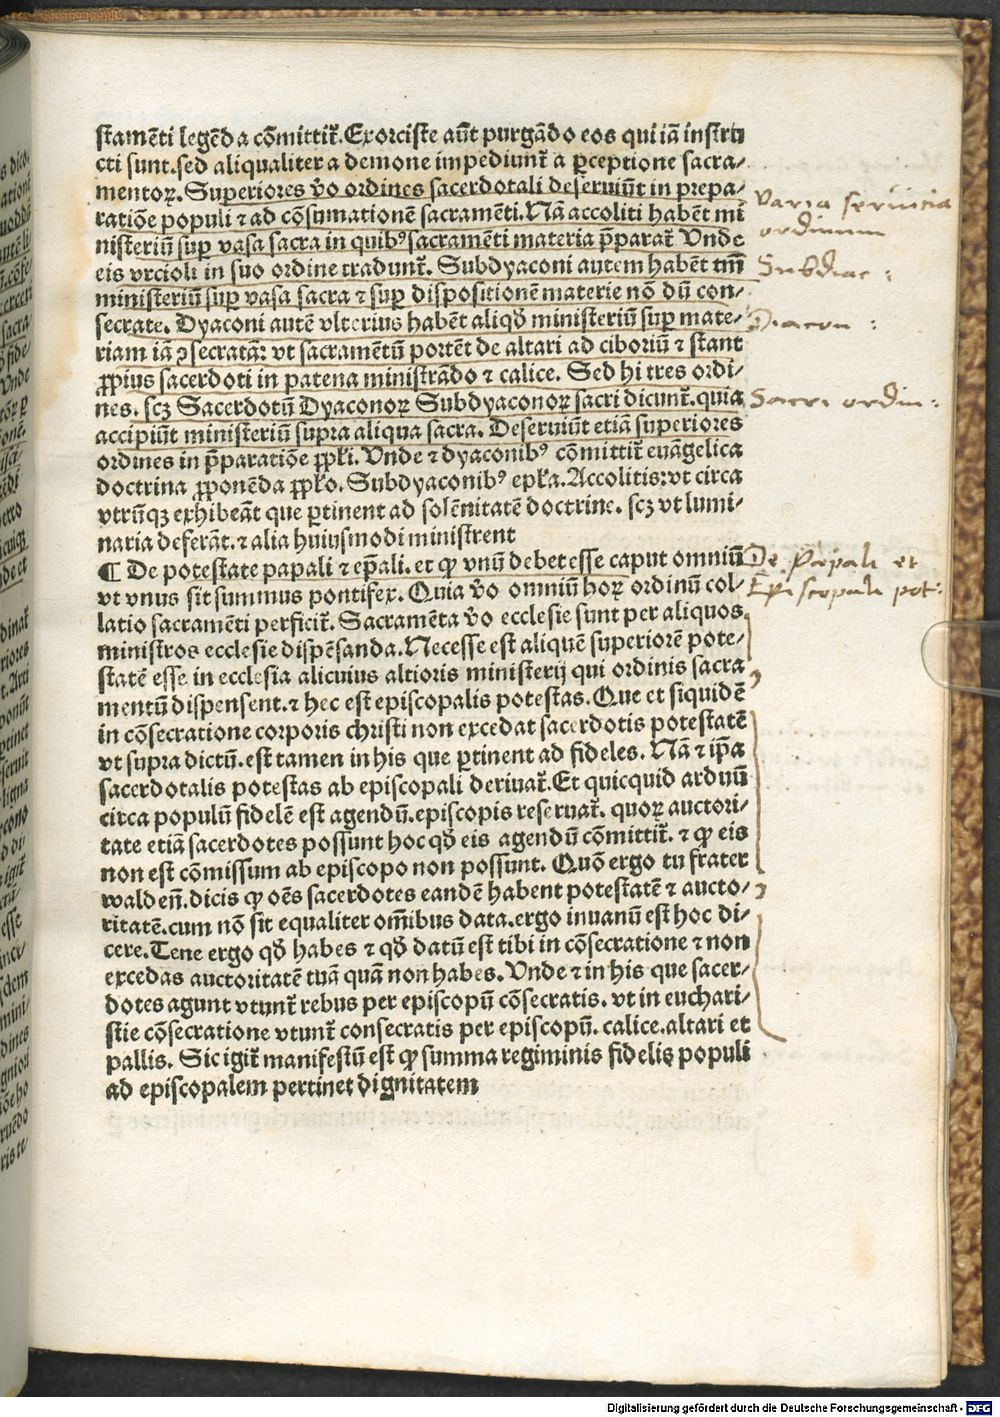 stamēti legēda cōmittit᷑.Exorciste aūt purgādo eos qui iā instru
cti sunt.sed aliqualiter a demone impediunt᷑ a ꝑceptione sacra⸗
mentoꝝ. Superiores ṽo ordines sacerdotali deseruiūt in prepa⸗
ratiōe populi ⁊ ad cōsumationē sacramēti. Nā accoliti habēt mi
nisteriū suꝑ vasa sacra in quibꝰ sacramēti materia p̄parat᷑ Vnde
eis vrcioli in suo ordine tradunt᷑. Subdyaconi autem habēt tm̄
ministeriū suꝑ vasa sacra ⁊ suꝑ dispositionē materie nō dū con⸗
secrate. Dyaconi autē vlterius habēt aliqḋ ministeriū suꝑ mate⸗
riam iā ꝯsecratā: vt sacramētū portēt de altari ad ciboriū ⁊ stant
ꝓpius sacerdoti in patena ministrādo ⁊ calice. Sed hi tres ordi⸗
nes. scꝫ Sacerdotū Dyaconoꝝ Subdyaconoꝝ sacri dicunt᷑. quia
accipiūt ministeriū supra aliqua sacra. Deseruiūt etiā superiores
ordines in p̄paratiōe pp̄li. Vnde ⁊ dyaconibꝰ cōmittit᷑ euāgelica
doctrina ꝓponēda pp̄lo. Subdyaconibꝰ epl̄a. Accolitis: vt circa
vtrūqꝫ exhibeāt que ꝑtinent ad solēnitatē doctrine. scꝫ vt lumi⸗
naria deferāt. ⁊ alia huiusmodi ministrent
¶ De potestate papali ⁊ ep̄ali. et ꝙ vnū debet esse caput omniū
vt vnus sit summus pontifex. Quia ṽo omniū hoꝝ ordinū col⸗
latio sacramēti perficit᷑. Sacramēta ṽo ecclesie sunt per aliquos
ministros ecclesie dispēsanda. Necesse est aliquē superiorē pote⸗
statē esse in ecclesia alicuius altioris ministerij qui ordinis sacra
mentū dispensent. ⁊ hec est episcopalis potestas. Que et siquidē
in cōsecratione corporis christi non excedat sacerdotis potestatē
vt supra dictū. est tamen in his que ꝑtinent ad fideles. Nā ⁊ ip̄a
sacerdotalis potestas ab episcopali deriuat᷑. Et quicquid arduū
circa populū fidelē est agendū. episcopis reseruat᷑. quoꝝ auctori⸗
tate etiā sacerdotes possunt hoc qḋ eis agendū cōmittit᷑. ⁊ ꝙ eis
non est cōmissum ab episcopo non possunt. Quō ergo tu frater
waldeñ. dicis ꝙ oēs sacerdotes eandē habent potestatē ⁊ aucto⸗
ritatē. cum nō sit equaliter om̄ibus data. ergo inuanū est hoc di⸗
cere. Tene ergo qḋ habes ⁊ qḋ datū est tibi in cōsecratione ⁊ non
excedas auctoritatē tuā quā non habes. Vnde ⁊ in his que sacer⸗
dotes agunt vtunt᷑ rebus per episcopū cōsecratis. vt in euchari⸗
stie cōsecratione vtunt᷑ consecratis per episcopū. calice. altari et
pallis. Sic igit᷑ manifestū est ꝙ summa regiminis fidelis populi
ad episcopalem pertinet dignitatem
Varia seruicia
ordinum
Subdiac:
Diacon:
Sacri ordin:
De Papali et
Episcopali pot:
Digitalisierung gefördert durch die Deutsche Forschungsgemeinschaft - DFG